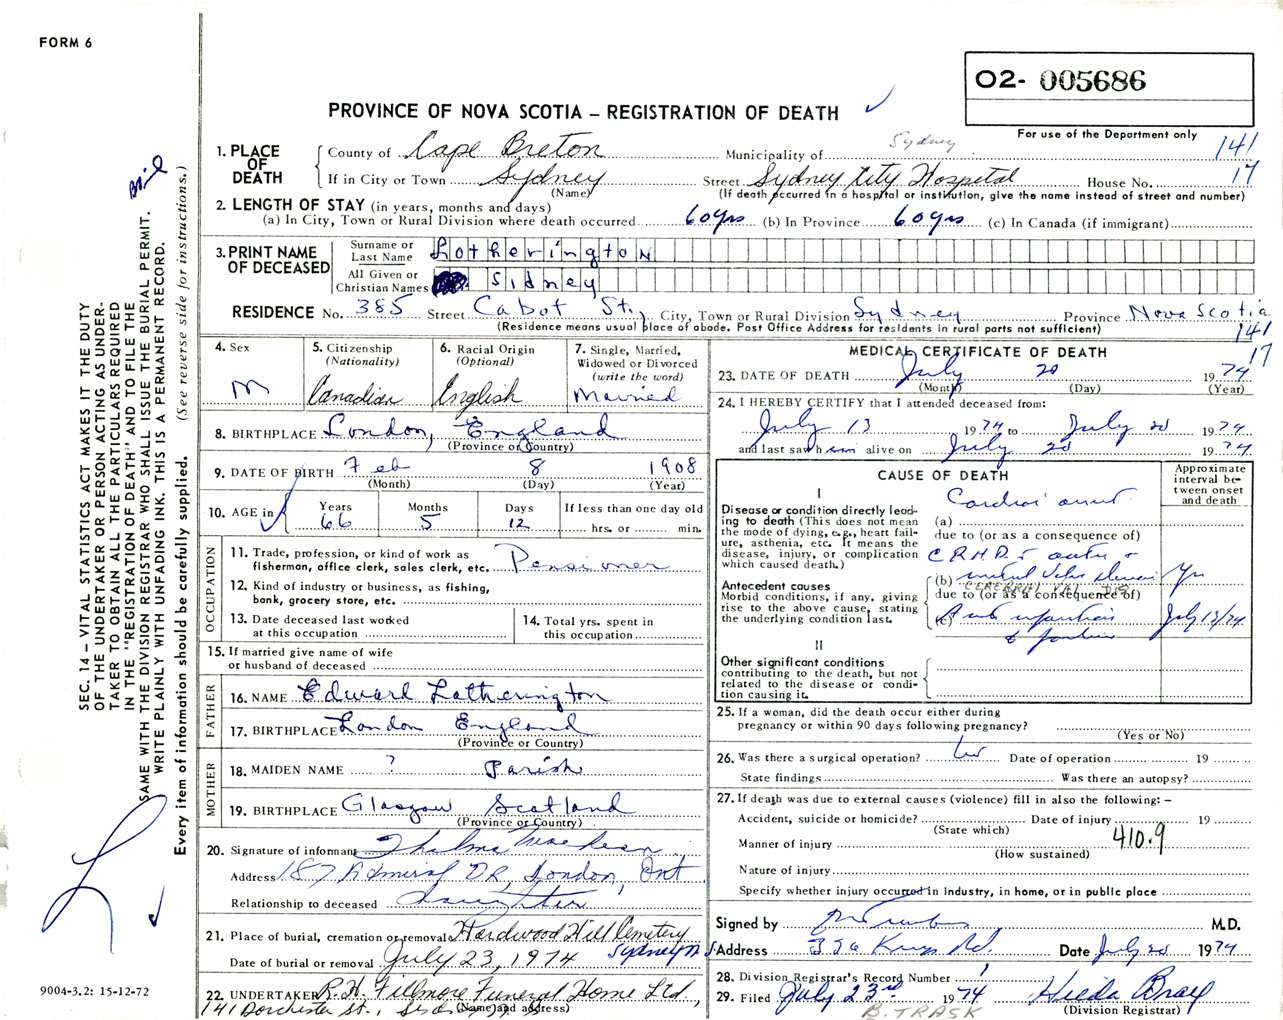 FORM 6
O2- 005686
PROVINCE OF NOVA SCOTIA – REGISTRATION OF DEATH
For use of the Department only
1. PLACE OF DEATH
County of Cape Breton Municipality of Sydney 141
If in City or Town Sydney Street Sydney City Hospital House No. 17
(Name) (If death occurred in a hospital or institution, give the name instead of street and number)
2. LENGTH OF STAY (in years, months and days)
(a) In City, Town or Rural Division where death occurred 60 yrs (b) In Province 60 yrs (c) In Canada (if immigrant)
3. PRINT NAME OF DECEASED
Surname or Last Name Lotherington
All Given or Christian Names Sidney
RESIDENCE No. 385 Street Cabot St., City, Town or Rural Division Sydney Province Nova Scotia
(Residence means usual place of abode. Post Office Address for residents in rural parts not sufficient) 141
17
4. Sex
M
5. Citizenship
(Nationality)
Canadian
6. Racial Origin
(Optional)
English
7. Single, Married,
Widowed or Divorced
(write the word)
Married
8. BIRTHPLACE London, England
(Province or Country)
9. DATE OF BIRTH Feb 8 1908
(Month) (Day) (Year)
10. AGE in
Years Months Days If less than one day old
66 5 12 hrs. or min.
OCCUPATION
11. Trade, profession, or kind of work as
fisherman, office clerk, sales clerk, etc. Pensioner
12. Kind of industry or business, as fishing,
bank, grocery store, etc.
13. Date deceased last worked
at this occupation
14. Total yrs. spent in
this occupation
15. If married give name of wife
or husband of deceased
FATHER
16. NAME Edward Lotherington
17. BIRTHPLACE London England
(Province or Country)
MOTHER
18. MAIDEN NAME ? Parish
19. BIRTHPLACE Glasgow Scotland
(Province or Country)
20. Signature of informant Thelma
Address 187 Admiral DR, London, Ont
Relationship to deceased Daughter
21. Place of burial, cremation or removal Hardwood Hill Cemetery
Sydney N.S.
Date of burial or removal July 23, 1974
22. UNDERTAKER R.H. Fillmore Funeral Home Ltd,
(Name and address)
141 Dorchester St., Sydney
MEDICAL CERTIFICATE OF DEATH
23. DATE OF DEATH July 20 1974
(Month) (Day) (Year)
24. I HEREBY CERTIFY that I attended deceased from:
July 13 1974 to July 20 1974
and last saw him alive on July 20 1974
CAUSE OF DEATH
Approximate
interval be-
tween onset
and death
I
Disease or condition directly lead-
ing to death (This does not mean
the mode of dying, e.g., heart fail-
ure, asthenia, etc. It means the
disease, injury, or complication
which caused death.)
Cardiac arrest
(a)
due to (or as a consequence of)
C R H D
(b) Yrs
Antecedent causes
Morbid conditions, if any, giving
rise to the above cause, stating
the underlying condition last.
due to (or as a consequence of)
(c) July 13/74
II
Other significant conditions
contributing to the death, but not
related to the disease or condi-
tion causing it.
25. If a woman, did the death occur either during
pregnancy or within 90 days following pregnancy?
(Yes or No)
26. Was there a surgical operation? Date of operation 19
State findings Was there an autopsy?
27. If death was due to external causes (violence) fill in also the following: –
Accident, suicide or homicide? Date of injury 19
(State which)
Manner of injury 410.9
(How sustained)
Nature of injury
Specify whether injury occurred in industry, in home, or in public place
Signed by M.D.
Address 336 Kings Rd. Date July 20 1974
28. Division Registrar's Record Number 1
29. Filed July 23rd 1974 Hilda Bray
(Division Registrar)
B. TRASK
SEC. 14 – VITAL STATISTICS ACT MAKES IT THE DUTY
OF THE UNDERTAKER OR PERSON ACTING AS UNDER-
TAKER TO OBTAIN ALL THE PARTICULARS REQUIRED
IN THE "REGISTRATION OF DEATH" AND TO FILE THE
SAME WITH THE DIVISION REGISTRAR WHO SHALL ISSUE THE BURIAL PERMIT.
WRITE PLAINLY WITH UNFADING INK. THIS IS A PERMANENT RECORD.
Every item of information should be carefully supplied. (See reverse side for instructions.)
9004-3.2: 15-12-72